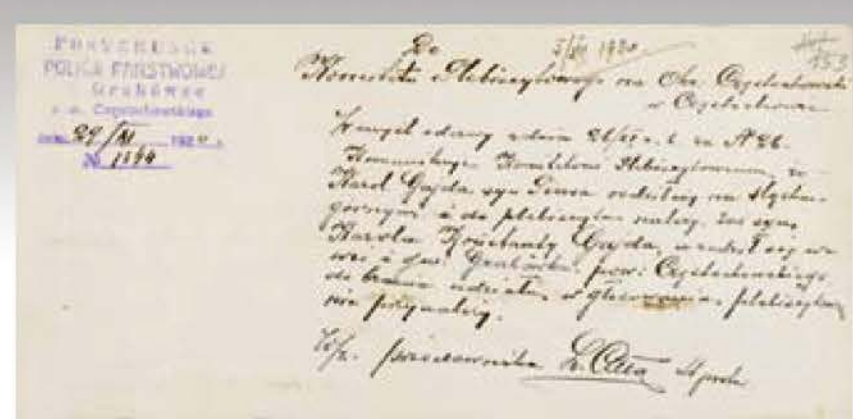 POSTERUNEK
POLICJI PAŃSTWOWEJ
Grabówce
Częstochowskiego
dnia 29/XI 1920
№ 1344
Do
5/XII 1920
153
Komitetu Plebiscytowego na Okr. Częstochowski
w Częstochowie
W myśl odezwy z dnia 26/XI r. b. za № 26.
Komunikuję Komitetowi Plebiscytowemu, że
Karol Gajda, syn rodził się na Śląsku
górnym i do plebiscytu należy, zaś syn
Karola Konstanty Gajda, urodził się we
wsi i gm. Grabówka, pow. Częstochowskiego
do brania udziału w głosowaniu plebiscytu
nie przynależy.
przodownika